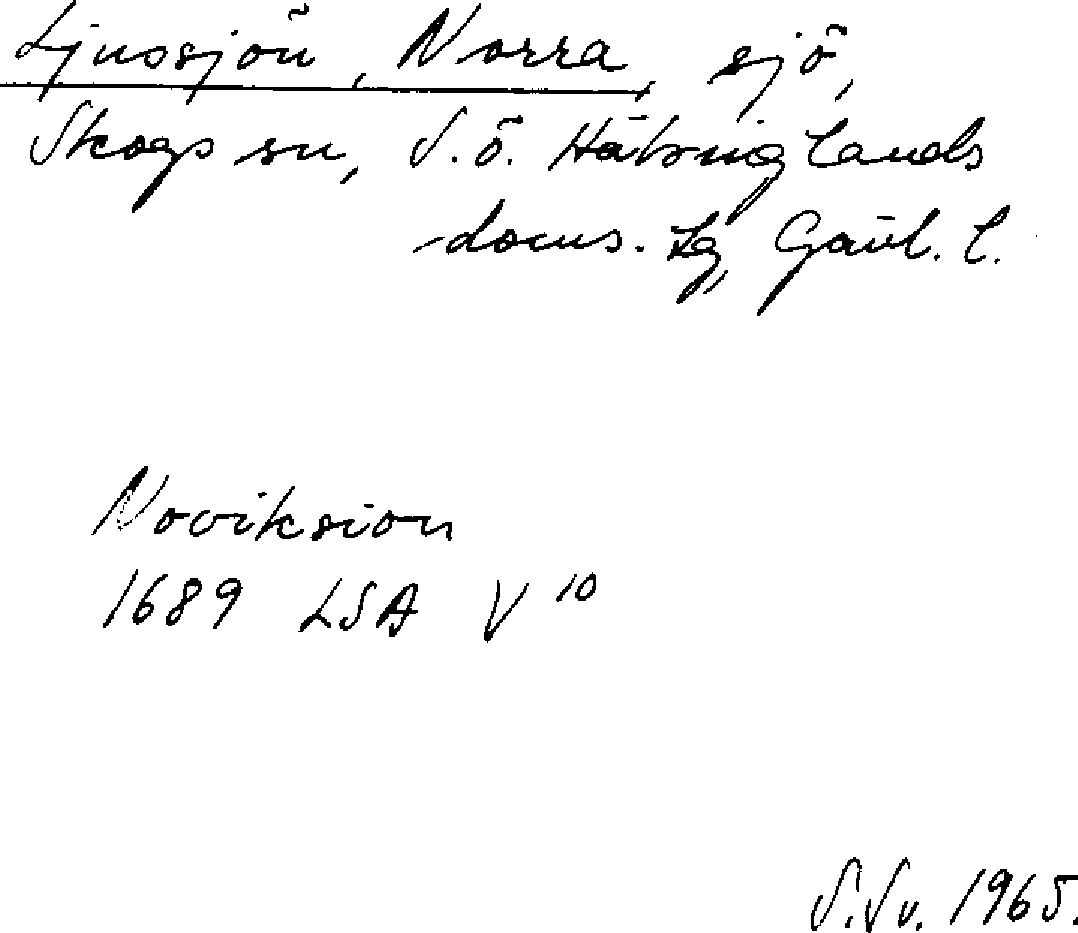 Ljussjön, Norra, sjö,
Skogs sn, S.ö. Hälsinglands
doms. Lg, Gävl. l.
Noviksion
1689 LSA V 10
S.Sv. 1965.